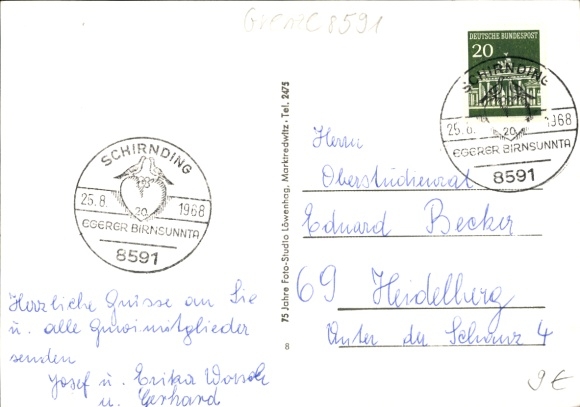 GV MC 8591
DEUTSCHE BUNDESPOST
20
SCHIRNDING
25.8. 1968
20
EGERER BIRNSUNNTA
8591
SCHIRNDING
25.8. 1968
20
EGERER BIRNSUNNTA
8591
75 Jahre Foto-Studio Löwenhag, Marktredwitz · Tel. 2475
8
Herrn
Oberstudienrat
Eduard Becker
69 Heidelberg
Unter der Schanz 4
Herzliche Grüsse an Sie
u. alle Gmoimitglieder
senden
Josef u. Erika
u. Gerhard
9€